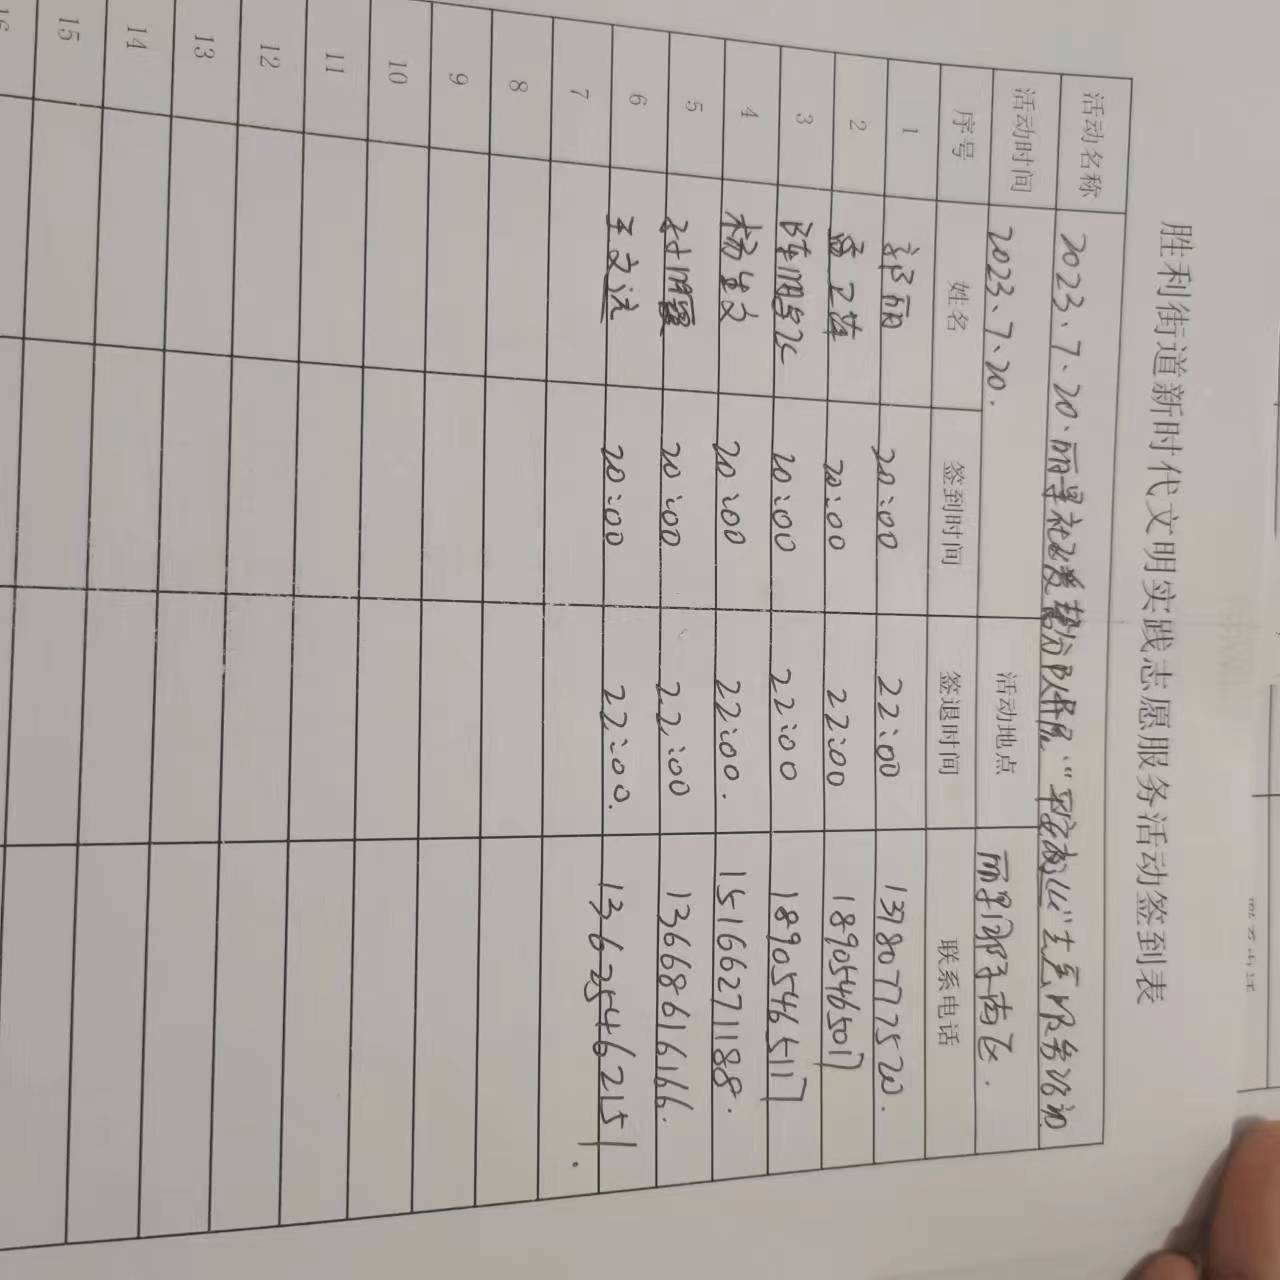 胜利街道新时代文明实践志愿服务活动签到表
活动名称 2023.7.20.丽景社区 分队开展"平安商业"志愿服务活动
活动时间 2023.7.20. 活动地点 丽景 南区.
序号 姓名 签到时间 签退时间 联系电话
1 郭丽 20:00 22:00 13780777520.
2 卫 20:00 22:00 18905465017
3 20:00 22:00 18905465117
4 杨 文 20:00 22:00. 15166271188.
5 20:00 22:00 13668616166.
6 王文 20:00 22:00. 13625462151.
7
8
9
10
11
12
13
14
15
16